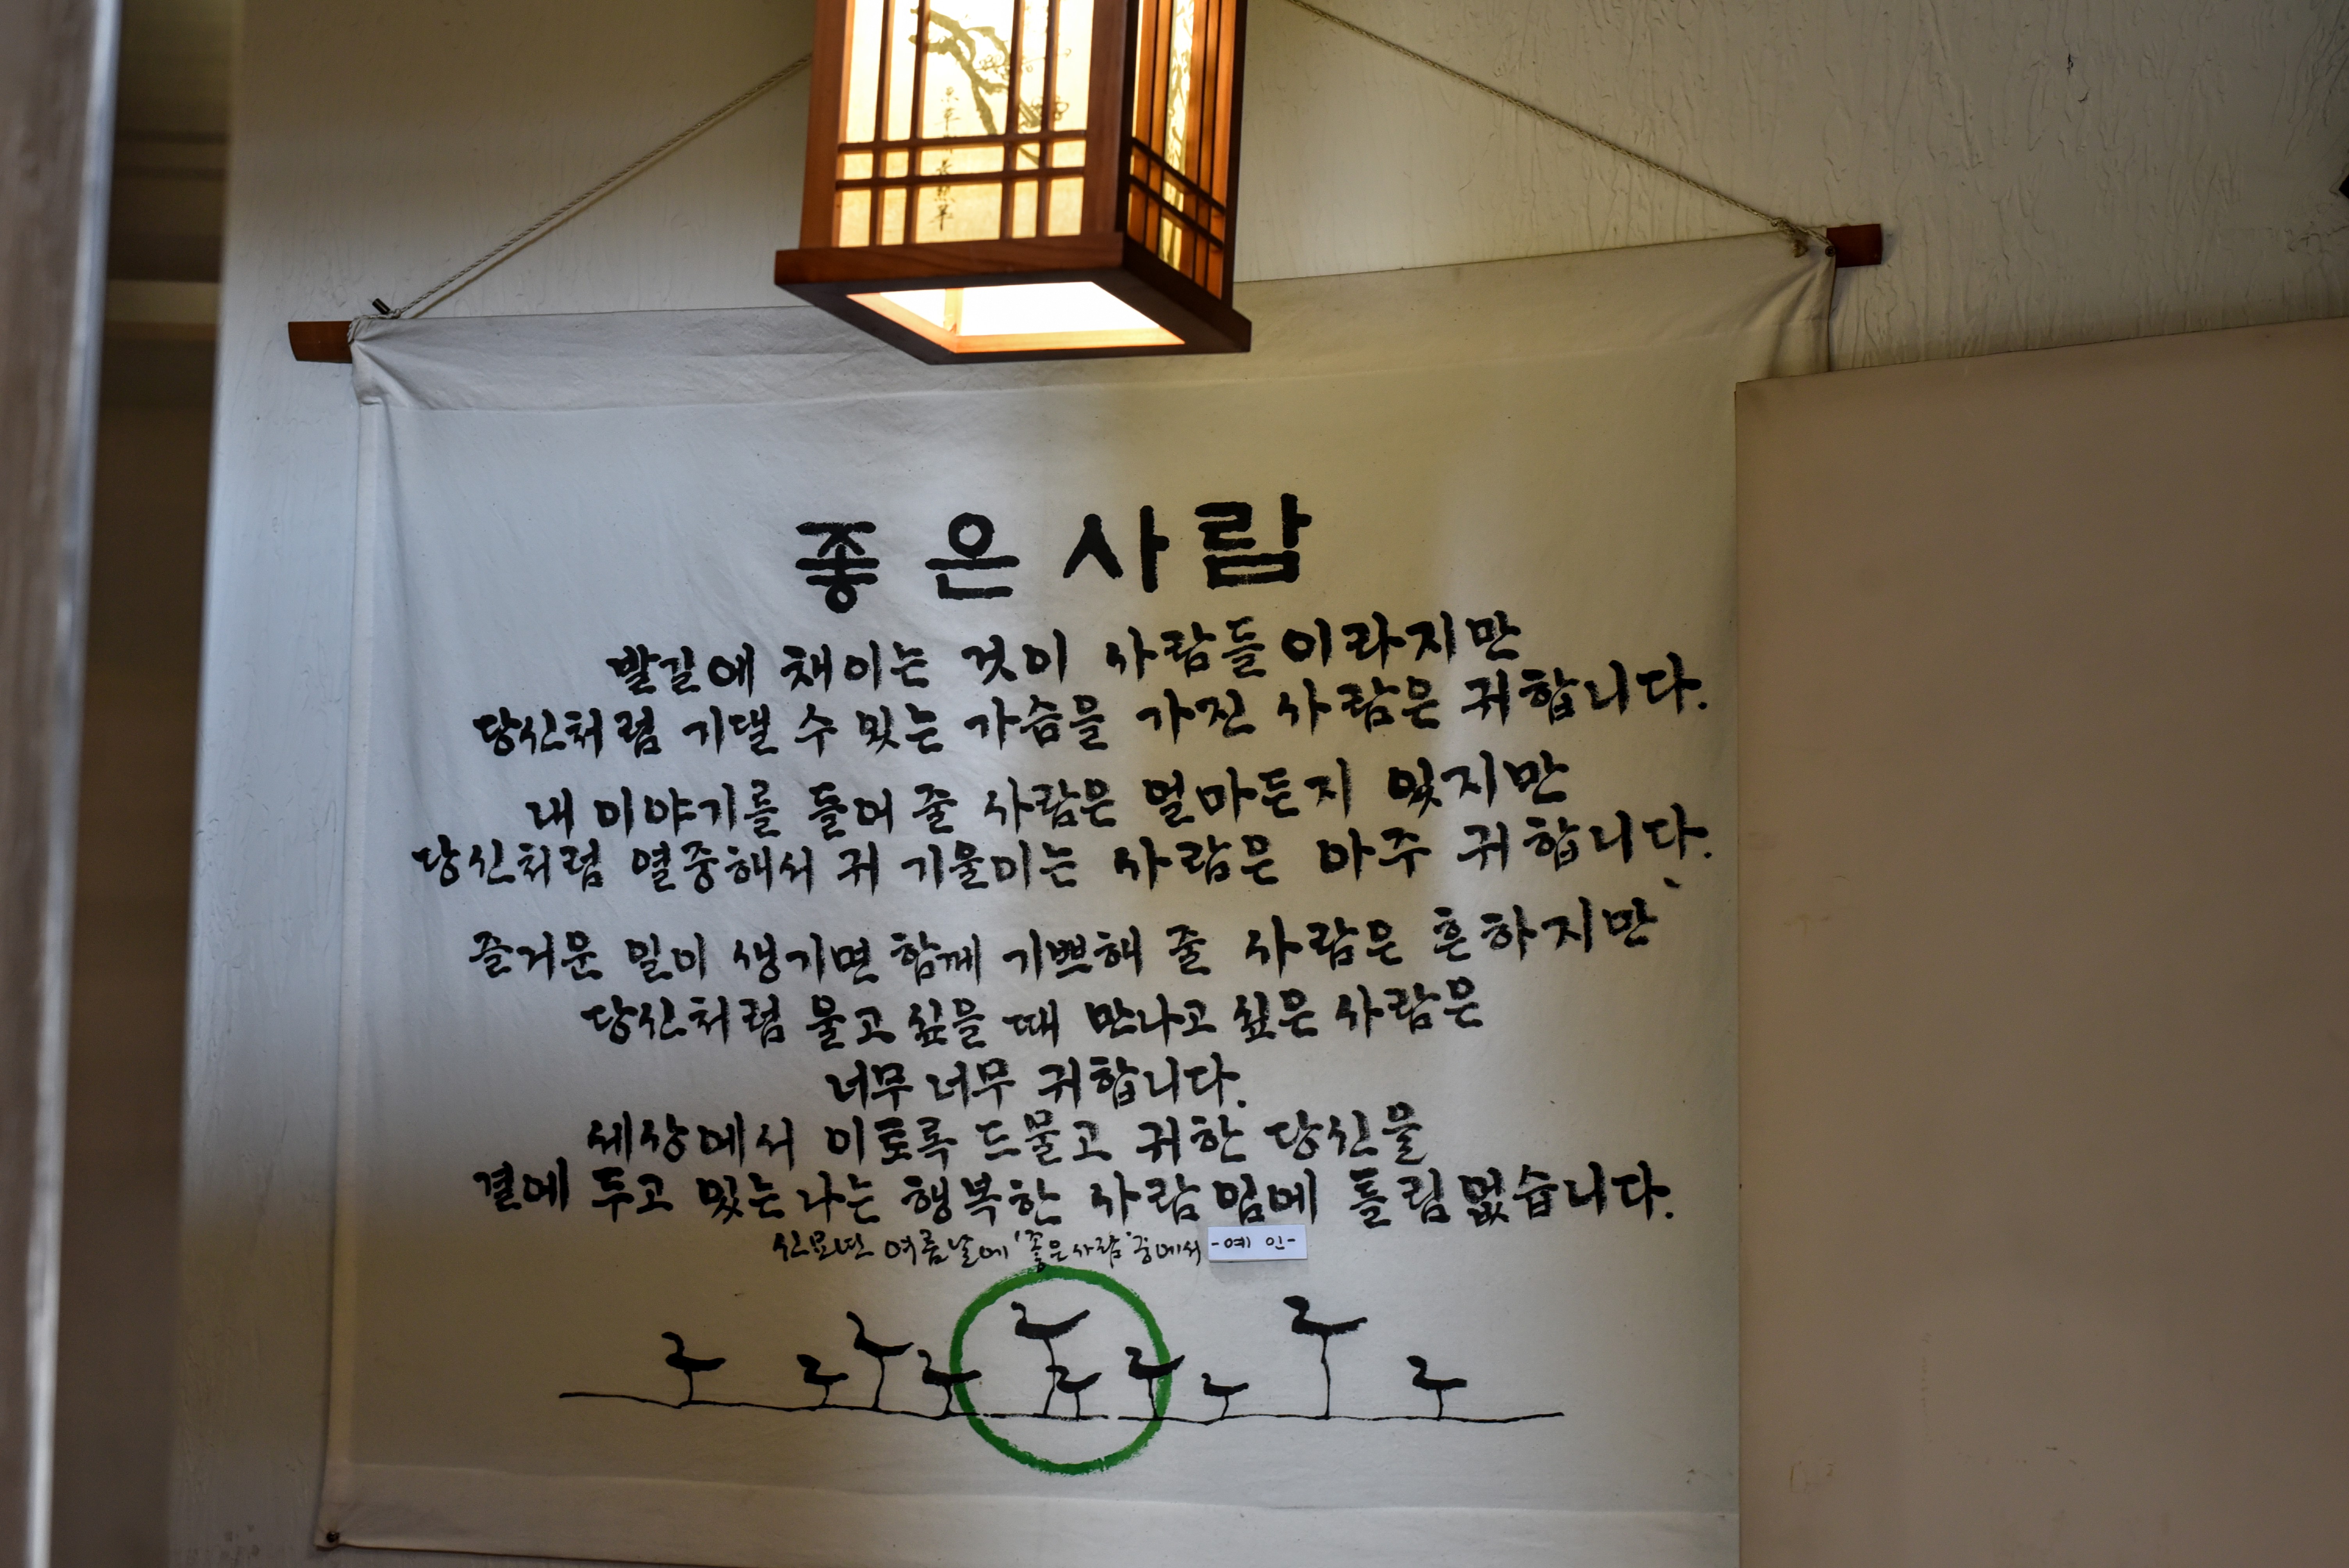 좋은사람
발길에 채이는 것이 사람들이라지만
당신처럼 기댈 수 있는 가슴을 가진 사람은 귀합니다.
내 이야기를 들어 줄 사람은 얼마든지 있지만
당신처럼 열중해서 귀 기울이는 사람은 아주 귀합니다.
즐거운 일이 생기면 함께 기쁘해 줄 사람은 흔하지만
당신처럼 울고 싶을 때 만나고 싶은 사람은
너무 너무 귀합니다.
세상에서 이토록 드물고 귀한 당신을
곁에 두고 있는 나는 행복한 사람임에 틀림없습니다.
신묘년 여름날에 '좋은사람' 중에서 -예 인-